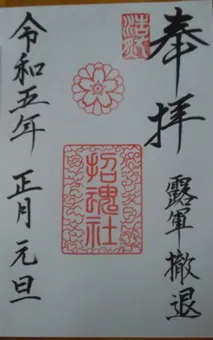 奉拝
露軍撤退
招魂社
令和五年 正月 元旦